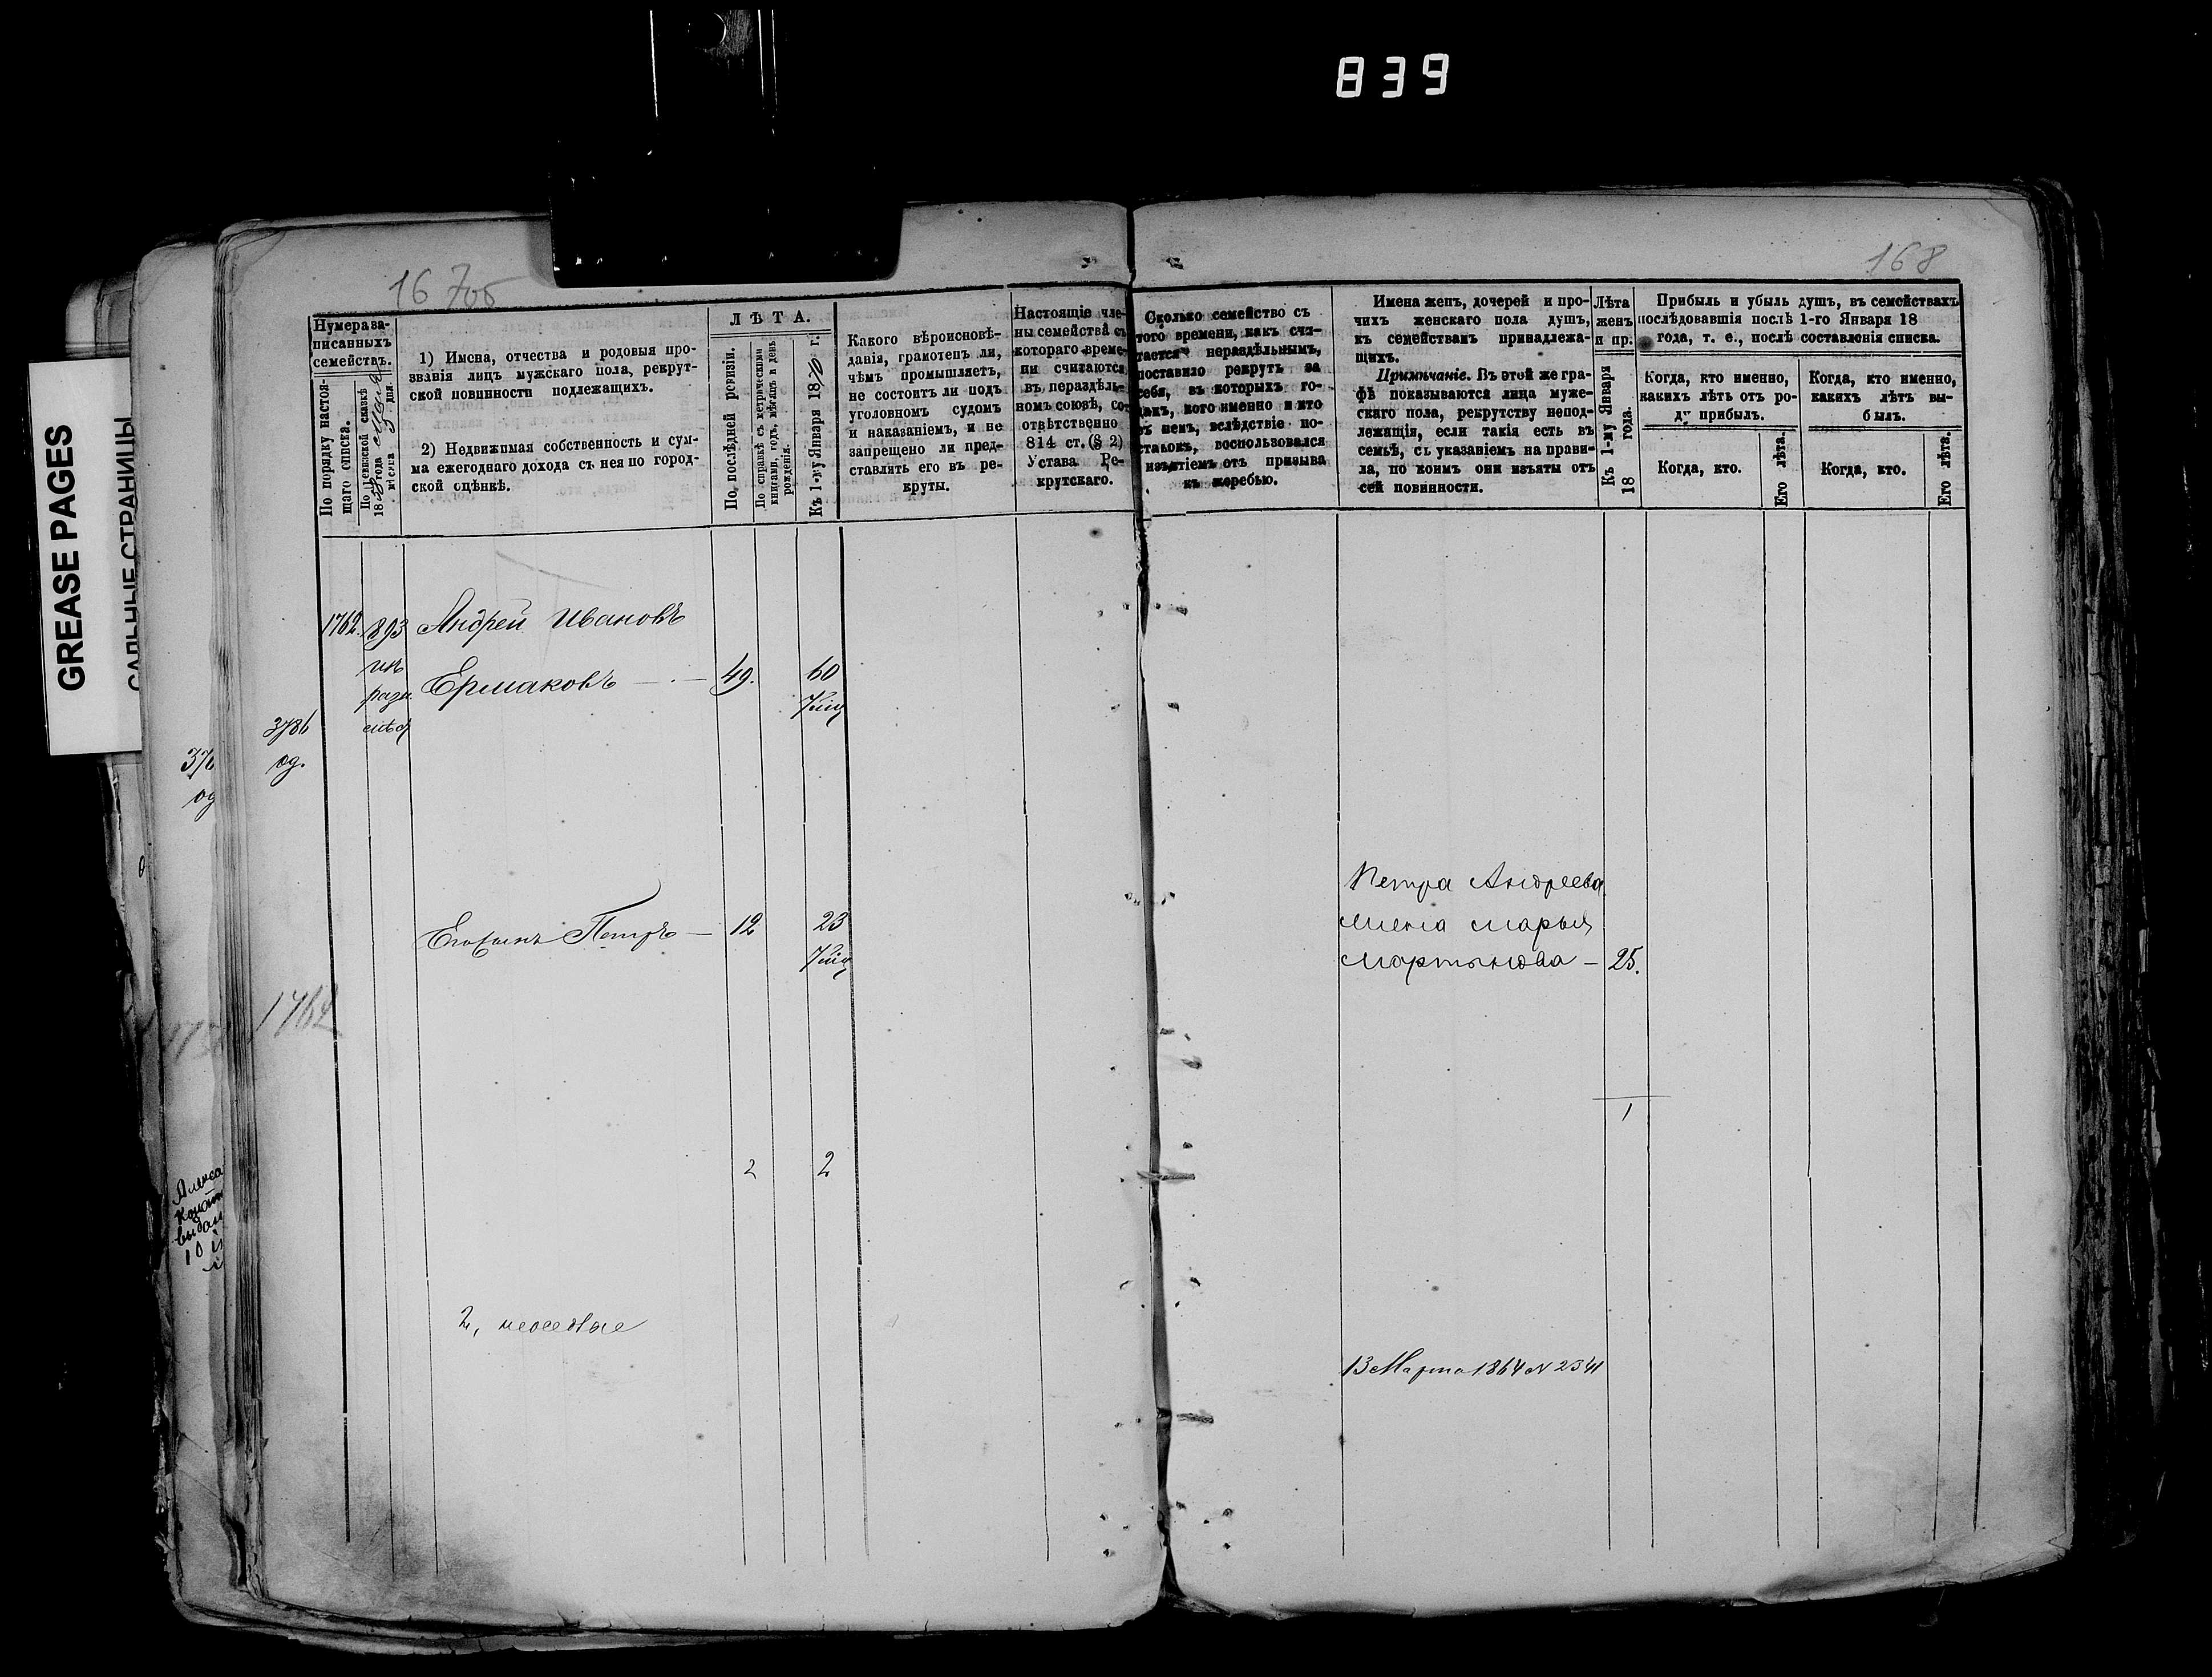 839
GREASE PAGES
САЛЬНЫЕ СТРАНИЦЫ
167об
168
Нумера за-
писанныхъ
семействъ.
По порядку настоя-
щаго списка.
По ревизской сказкѣ
18 года
мѣсяца дня.
1) Имена, отчества и родовыя про-
званія лицъ мужскаго пола, рекрут-
ской повинности подлежащихъ.
2) Недвижимая собственность и сум-
ма ежегоднаго дохода съ нея по город-
ской оцѣнкѣ.
ЛѢТА.
По послѣдней ревизіи.
По справкѣ съ метрическими
книгами, годъ, мѣсяцъ и день
рожденія.
Къ 1-му Января 1870 г.
Какого вѣроисновѣ-
данія, грамотенъ ли,
чѣмъ промышляетъ,
не состоитъ ли подъ
уголовномъ судомъ
и наказаніемъ, и не
запрещено ли пред-
ставлять его въ ре-
круты.
Настоящіе чле-
ны семейства съ
котораго време-
ни считаются
въ нераздѣль-
номъ союзѣ, со-
отвѣтственно
814 ст. (§ 2)
Устава Ре-
крутскаго.
Сколько семейство съ
того времени, какъ счи-
тается нераздѣльнымъ,
поставило рекрутъ за
себя, въ которыхъ го-
дахъ, кого именно и кто
въ немъ, вслѣдствіе по-
ставокъ, воспользовался
изъятіемъ отъ призыва
къ жеребью.
Имена женъ, дочерей и про-
чихъ женскаго пола душъ,
къ семействамъ принадлежа-
щихъ.
Примѣчаніе. Въ этой же гра-
фѣ показываются лица муже-
скаго пола, рекрутству непод-
лежащія, если такія есть въ
семьѣ, съ указаніемъ на прави-
ла, по коимъ они изъяты отъ
сей повинности.
Лѣта
женъ
и пр.
Къ 1-му Января
18 года.
Прибыль и убыль душъ, въ семействахъ
послѣдовавшія послѣ 1-го Января 18
года, т. е., послѣ составленія списка.
Когда, кто именно,
какихъ лѣтъ отъ ро-
ду прибылъ.
Когда, кто именно,
какихъ лѣтъ вы-
былъ.
Когда, кто.
Его лѣта.
Когда, кто.
Его лѣта.
1762. 893 Андрей Ивановъ
Ермаковъ — 49. 60
3786
од.
Егосынъ Петръ — 12 23
Петра Андреева
жена Марья
Мартынова — 25.
1762
1
2 2
2,
13 Марта 1864 N 2341